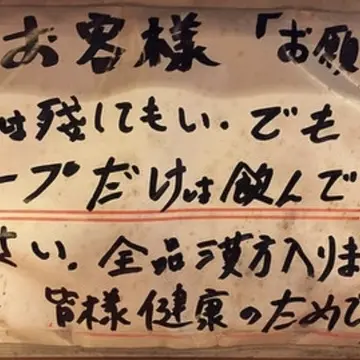 お客様「お願
は残してもい．でも
ープだけは飲んで
さい。全品漢方入りま
皆様健康のためひ